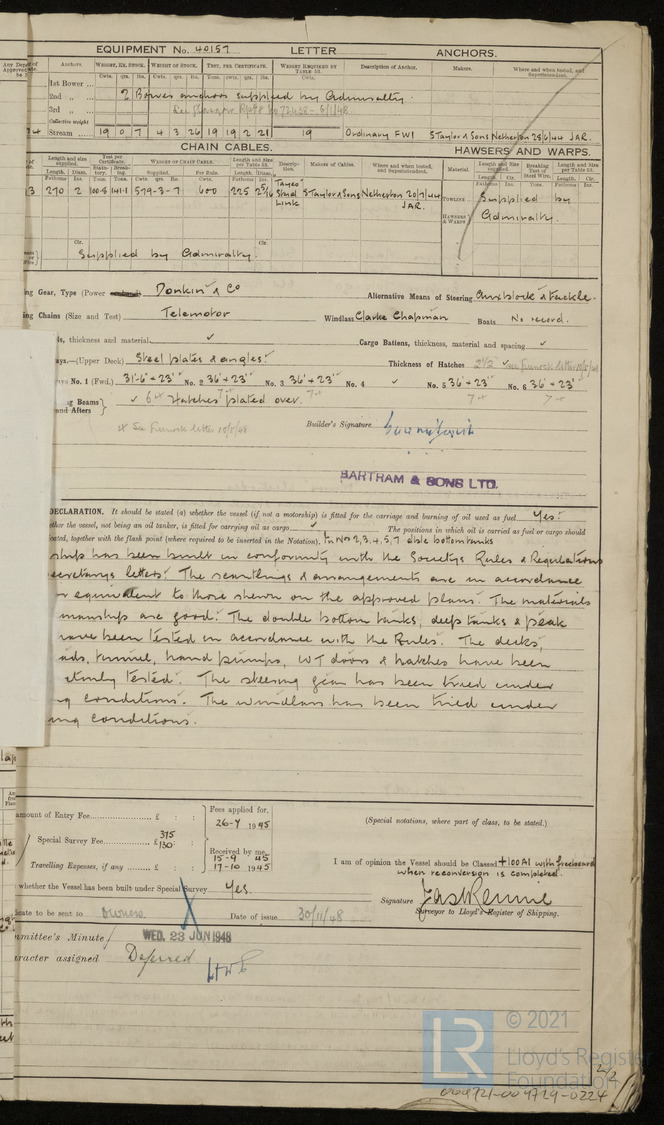 EQUIPMENT No. 40157 LETTER ANCHORS.
Anchors. Weight, Ex. Stock. Weight of Stock. Test, per Certificate. Weight Required by Table 53. Description of Anchor. Makers. Where and when tested, and Superintendent.
Cwts. qrs. lbs. Cwts. qrs. lbs. Tons. cwts. qrs. lbs. Cwts.
1st Bower
2nd „ 2 Bower anchors supplied by Admiralty.
3rd „
Collective weight
Stream 19 0 7 4 3 26 19 19 2 21 19 Ordinary FWI S Taylor & Sons Netherton 28/6/44 JAR.
CHAIN CABLES. HAWSERS AND WARPS.
Length and size supplied. Test per Certificate. Weight of Chain Cable. Length and Size per Table 53. Description. Makers of Cables. Where and when tested, and Superintendent. Material. Length and Size supplied. Breaking Test of Steel Wire. Length and Size per Table 53.
Fathoms Diam. Statutory. Breaking. Supplied. Per Rule. Length. Diam. Length. Cir.
270 2 100·8 141·1 579-3-7 600 225 2 5/16 Tayco Stud Link S Taylor & Sons Netherton 20/7/44 JAR.
Towline Supplied by
Hawsers & Warps Admiralty.
Supplied by Admiralty
ing Gear, Type (Power Donkin & Co Alternative Means of Steering Chainblock & Tackle.
ing Chains (Size and Test) Telemotor Windlass Clarke Chapman Boats No record.
thickness and material ✓ Cargo Battens, thickness, material and spacing ✓
(Upper Deck) Steel plates & angles. Thickness of Hatches 2½" ✓
No. 1 (Fwd.) 31'-6" + 23'- No. 2 36' + 23'- No. 3 36' + 23'- No. 4 ✓ No. 5 36' + 23'- No. 6 36' + 23'-
g Beams and Afters ✓ Hatches plated over.
Builder's Signature
BARTRAM & SONS LTD.
DECLARATION. It should be stated (a) whether the vessel (if not a motorship) is fitted for the carriage and burning of oil used as fuel Yes.
ther the vessel, not being an oil tanker, is fitted for carrying oil as cargo ✓ The positions in which oil is carried as fuel or cargo should
cated, together with the flash point (where required to be inserted in the Notation). In Nos 2,3,4,5,7 dble bottom tanks
ship has been built in conformity with the Societys Rules & Regulations
ecretarys letters. The scantlings & arrangements are in accordance
r equivalent to those shewn on the approved plans. The materials
manship are good. The double bottom tanks, deep tanks & peak
have been tested in accordance with the Rules. The decks,
ads, tunnel, hand pumps, WT doors & hatches have been
tested. The steering gear has been tried under
g conditions. The windlass has been tried under
ing conditions.
amount of Entry Fee £ : :
Special Survey Fee £ 375 130 : :
Travelling Expenses, if any £ : :
Fees applied for, 26-7 1945
Received by me, 15-9 45 17-10 1945
(Special notations, where part of class, to be stated.)
I am of opinion the Vessel should be Classed +100A1 with freeboard
when reconversion is completed.
whether the Vessel has been built under Special Survey Yes.
Signature Jas Rennie
Surveyor to Lloyd's Register of Shipping.
icate to be sent to Owners Date of issue 30/11/48
mmittee's Minute WED. 23 JUN 1948
aracter assigned Deferred
© 2021
Lloyd's Register
Foundation
2/2
004721-004729-0224